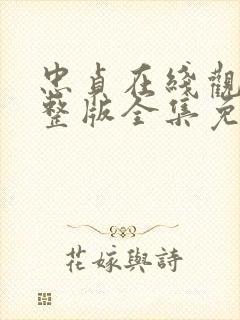 忠貞在綫觀
整版全集免
花嫁與詩